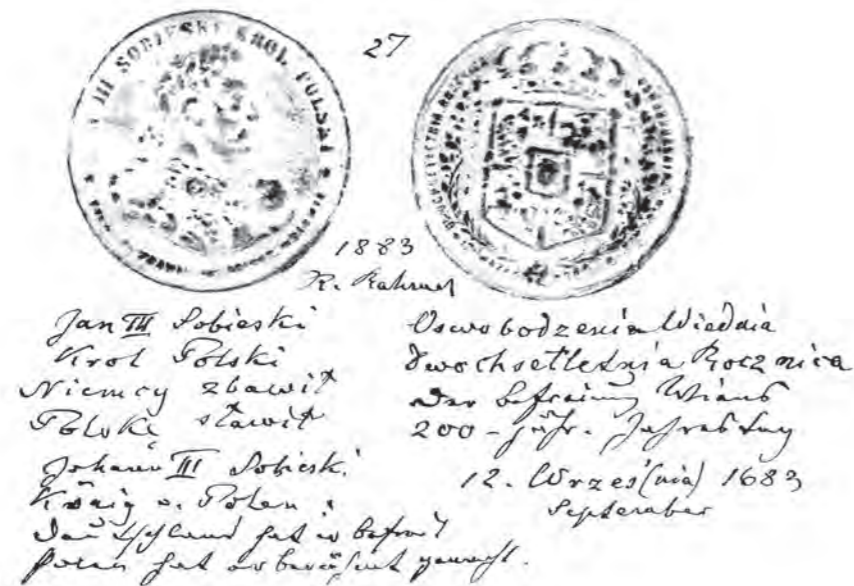 III SOBIESKI KROL POLSKI
27
1883
Jan III Sobieski
Krol Polski
Niemcy zbawił
Polskę sławił
Johann III Sobieski
König v. Polen
Deutschland hat er befreit
Polen hat er berühmt gemacht.
Oswobodzenia Wiednia
Dwochsetletnia Rocznica
Der Befreiung Wiens
200-jähr. Jahrestag
12. Wrześ(nia) 1683
September